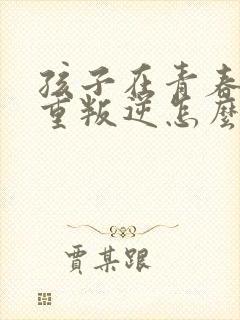 孩子在青春
重叛逆怎麼
賈某跟